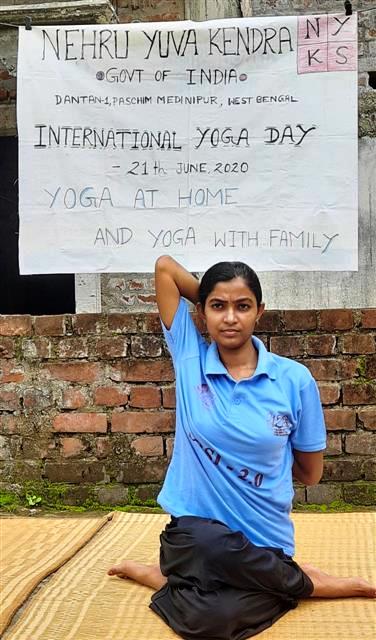 NEHRU YUVA KENDRA
N Y
K S
GOVT OF INDIA
DANTAN-1, PASCHIM MEDINIPUR, WEST BENGAL
INTERNATIONAL YOGA DAY
- 21th JUNE, 2020
YOGA AT HOME
AND YOGA WITH FAMILY
- 2.0